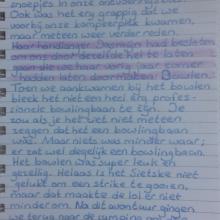 snoepjes. In onze ontwerpnissen
Ook was het erg grappig dat we
voorbij onze kampeerplek kwamen,
maar meteen weer verder reden.
Haar handlanger Dasmijn had besloten
om ons door dezelfde hel te laten
gaan die we haar vorig jaar ermee
hadden laten doormaken: Bowlen!
Toen we aankwamen bij het bowlen
bleek het niet een heel erg profes-
sionele bowlingbaan te zijn. Je
zou als je het wet niet meteen
zeggen dat het een bowlingbaan
was. Maar niets was minder waar;
er zat wel degelijk een bowlingbaan.
Het bowlen was super leuk en
gezellig. Helaas is het Sietske niet
gelukt om een strike te gooien,
maar dat maakte de lol er niet
minder om. Na dit avontuur gingen
we terug naar de camping